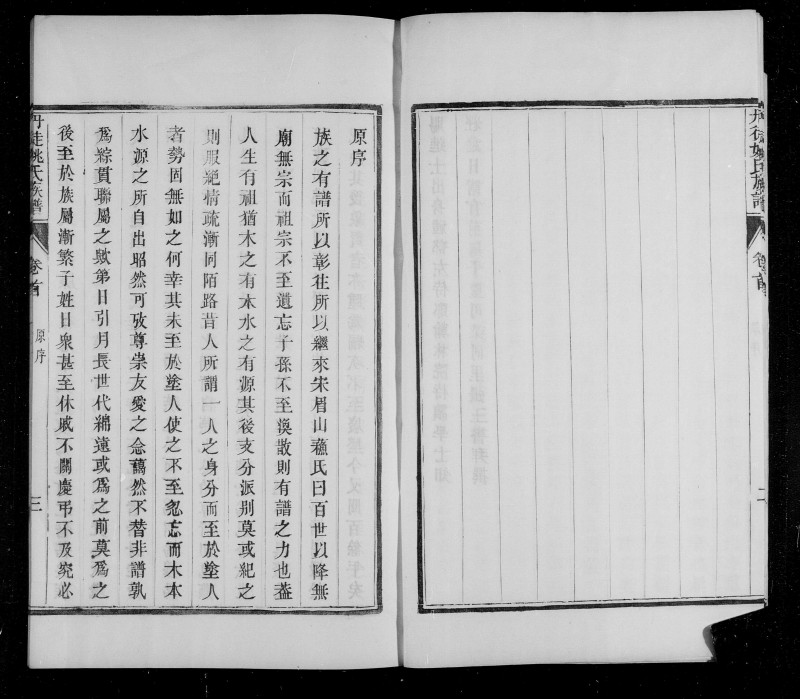 丹徒姚氏族譜
卷首
二
原序
族之有譜所以彰往所以繼來宋眉山蘓氏曰百世以降無
廟無宗而祖宗不至遺忘子孫不至渙散則有譜之力也蓋
人生有祖猶木之有本水之有源其後支分派別莫或紀之
則服絕情疏漸同陌路昔人所謂一人之身分而至於塗人
者勢固無如之何幸其未至於塗人使之不至忽忘而木本
水源之所自出昭然可攷尊祟友愛之念藹然不替非譜孰
爲綜貫聯屬之歟第日引月長世代綿遠或爲之前莫爲之
後至於族屬漸繁子姓日衆甚至休戚不關慶弔不及究必
丹徒姚氏族譜
卷首
原序
三